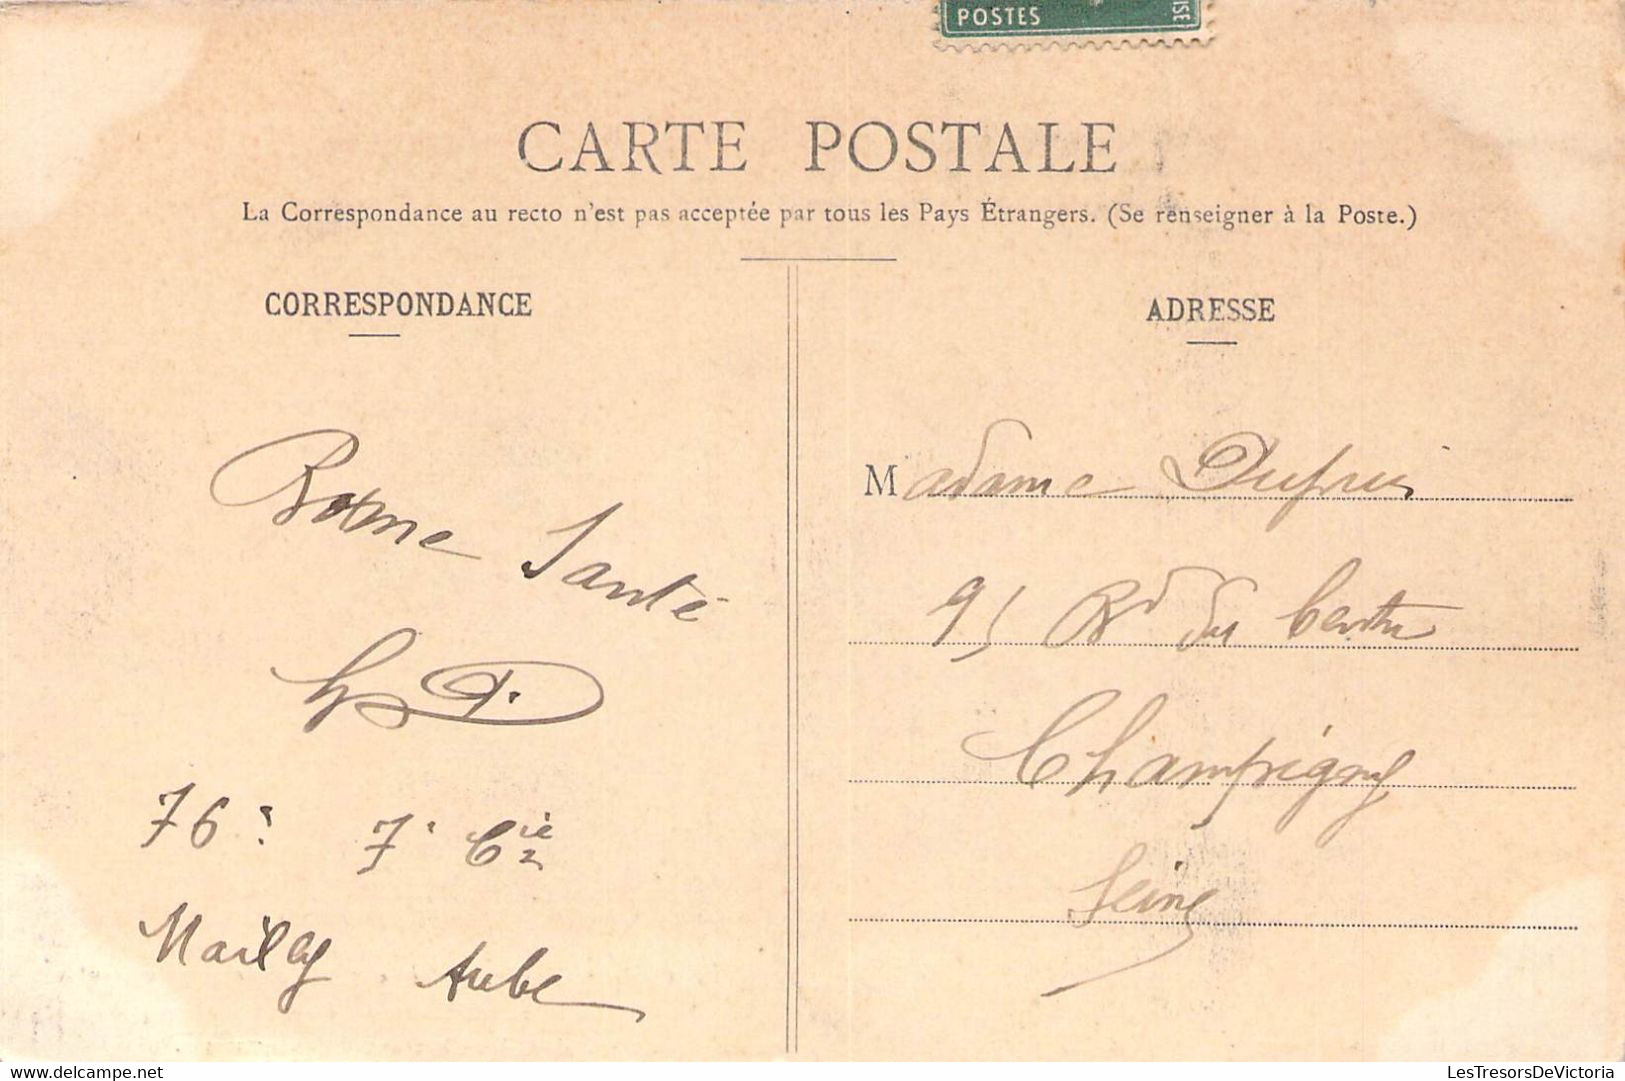 POSTES
ISE
CARTE POSTALE
La Correspondance au recto n'est pas acceptée par tous les Pays Étrangers. (Se renseigner à la Poste.)
CORRESPONDANCE
Bonne Santé
76e 7e Cie
Mailly Aube
ADRESSE
Madame Dupuis
95 Bd du Centre
Champigny
Seine
LesTresorsDeVictoria
delcampe.net